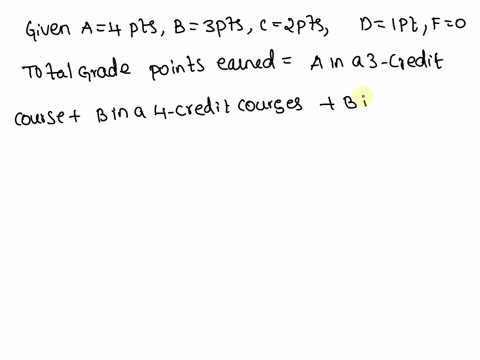 Given A=4 pts, B=3pts, C=2pts, D=1pt, F=0
Total Grade points earned = A in a 3-credit
course + B in a 4-credit courges + B i